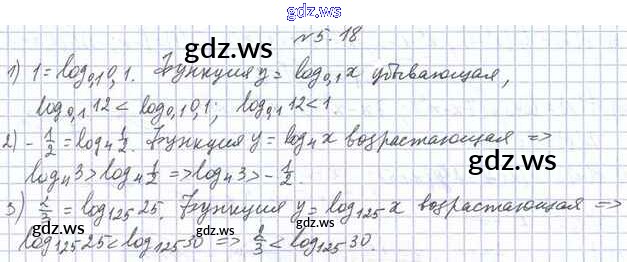 gdz.ws
№5.18
1) 1 = log₀,₁0,1. Функция y = log₀,₁x убывающая,
log₀,₁12 < log₀,₁0,1; log₀,₁12 < 1
2) -1/2 = log₄1/2. Функция y = log₄x возрастающая =>
log₄3 > log₄1/2 => log₄3 > -1/2.
3) 2/3 = log₁₂₅25. Функция y = log₁₂₅x возрастающая =>
log₁₂₅25 < log₁₂₅30 => 2/3 < log₁₂₅30.
gdz.ws
gdz.ws
gdz.ws
gdz.ws
gdz.ws
gdz.ws